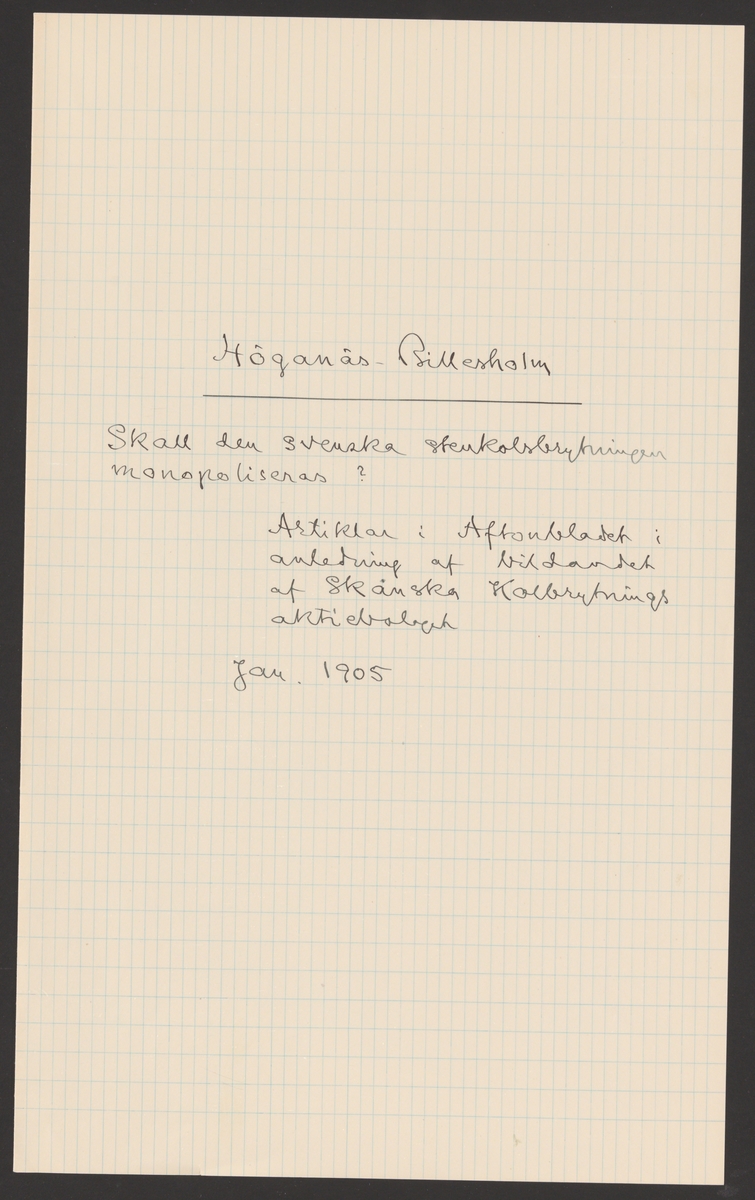 Höganäs-Billesholm
Skall den svenska stenkolsbrytningen
monopoliseras ?
Artiklar i Aftonbladet i
anledning af bildandet
af Skånska Kolbrytnings
aktiebolaget
Jan. 1905